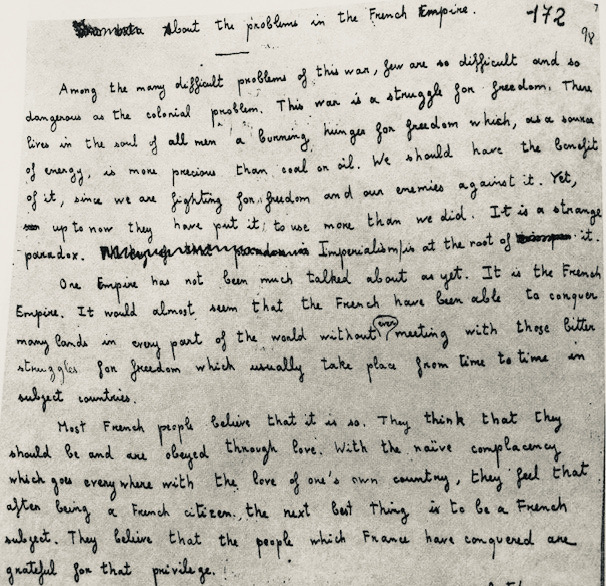 About the problems in the French Empire. 172
98
Among the many difficult problems of this war, few are so difficult and so
dangerous as the colonial problem. This war is a struggle for freedom. There
lives in the soul of all men a burning hunger for freedom which, as a source
of energy, is more precious than coal or oil. We should have the benefit
of it, since we are fighting for freedom and our enemies against it. Yet,
up to now they have put it to use more than we did. It is a strange
paradox. Imperialism is at the root of it.
One Empire has not been much talked about as yet. It is the French
Empire. It would almost seem that the French have been able to conquer
many lands in every part of the world without ever meeting with those bitter
struggles for freedom which usually take place from time to time in
subject countries.
Most French people believe that it is so. They think that they
should be and are obeyed through love. With the naïve complacency
which goes everywhere with the love of one's own country, they feel that
after being a French citizen, the next best thing is to be a French
subject. They believe that the people which France have conquered are
grateful for that privilege.